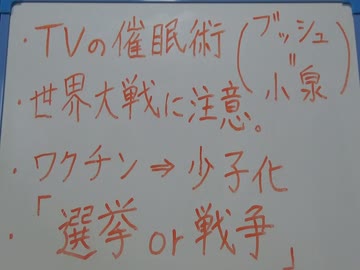 ・TVの催眠術(ブッシュ
〃
小泉)
・世界大戦に注意。
・ワクチン⇒少子化
・「選挙or戦争」